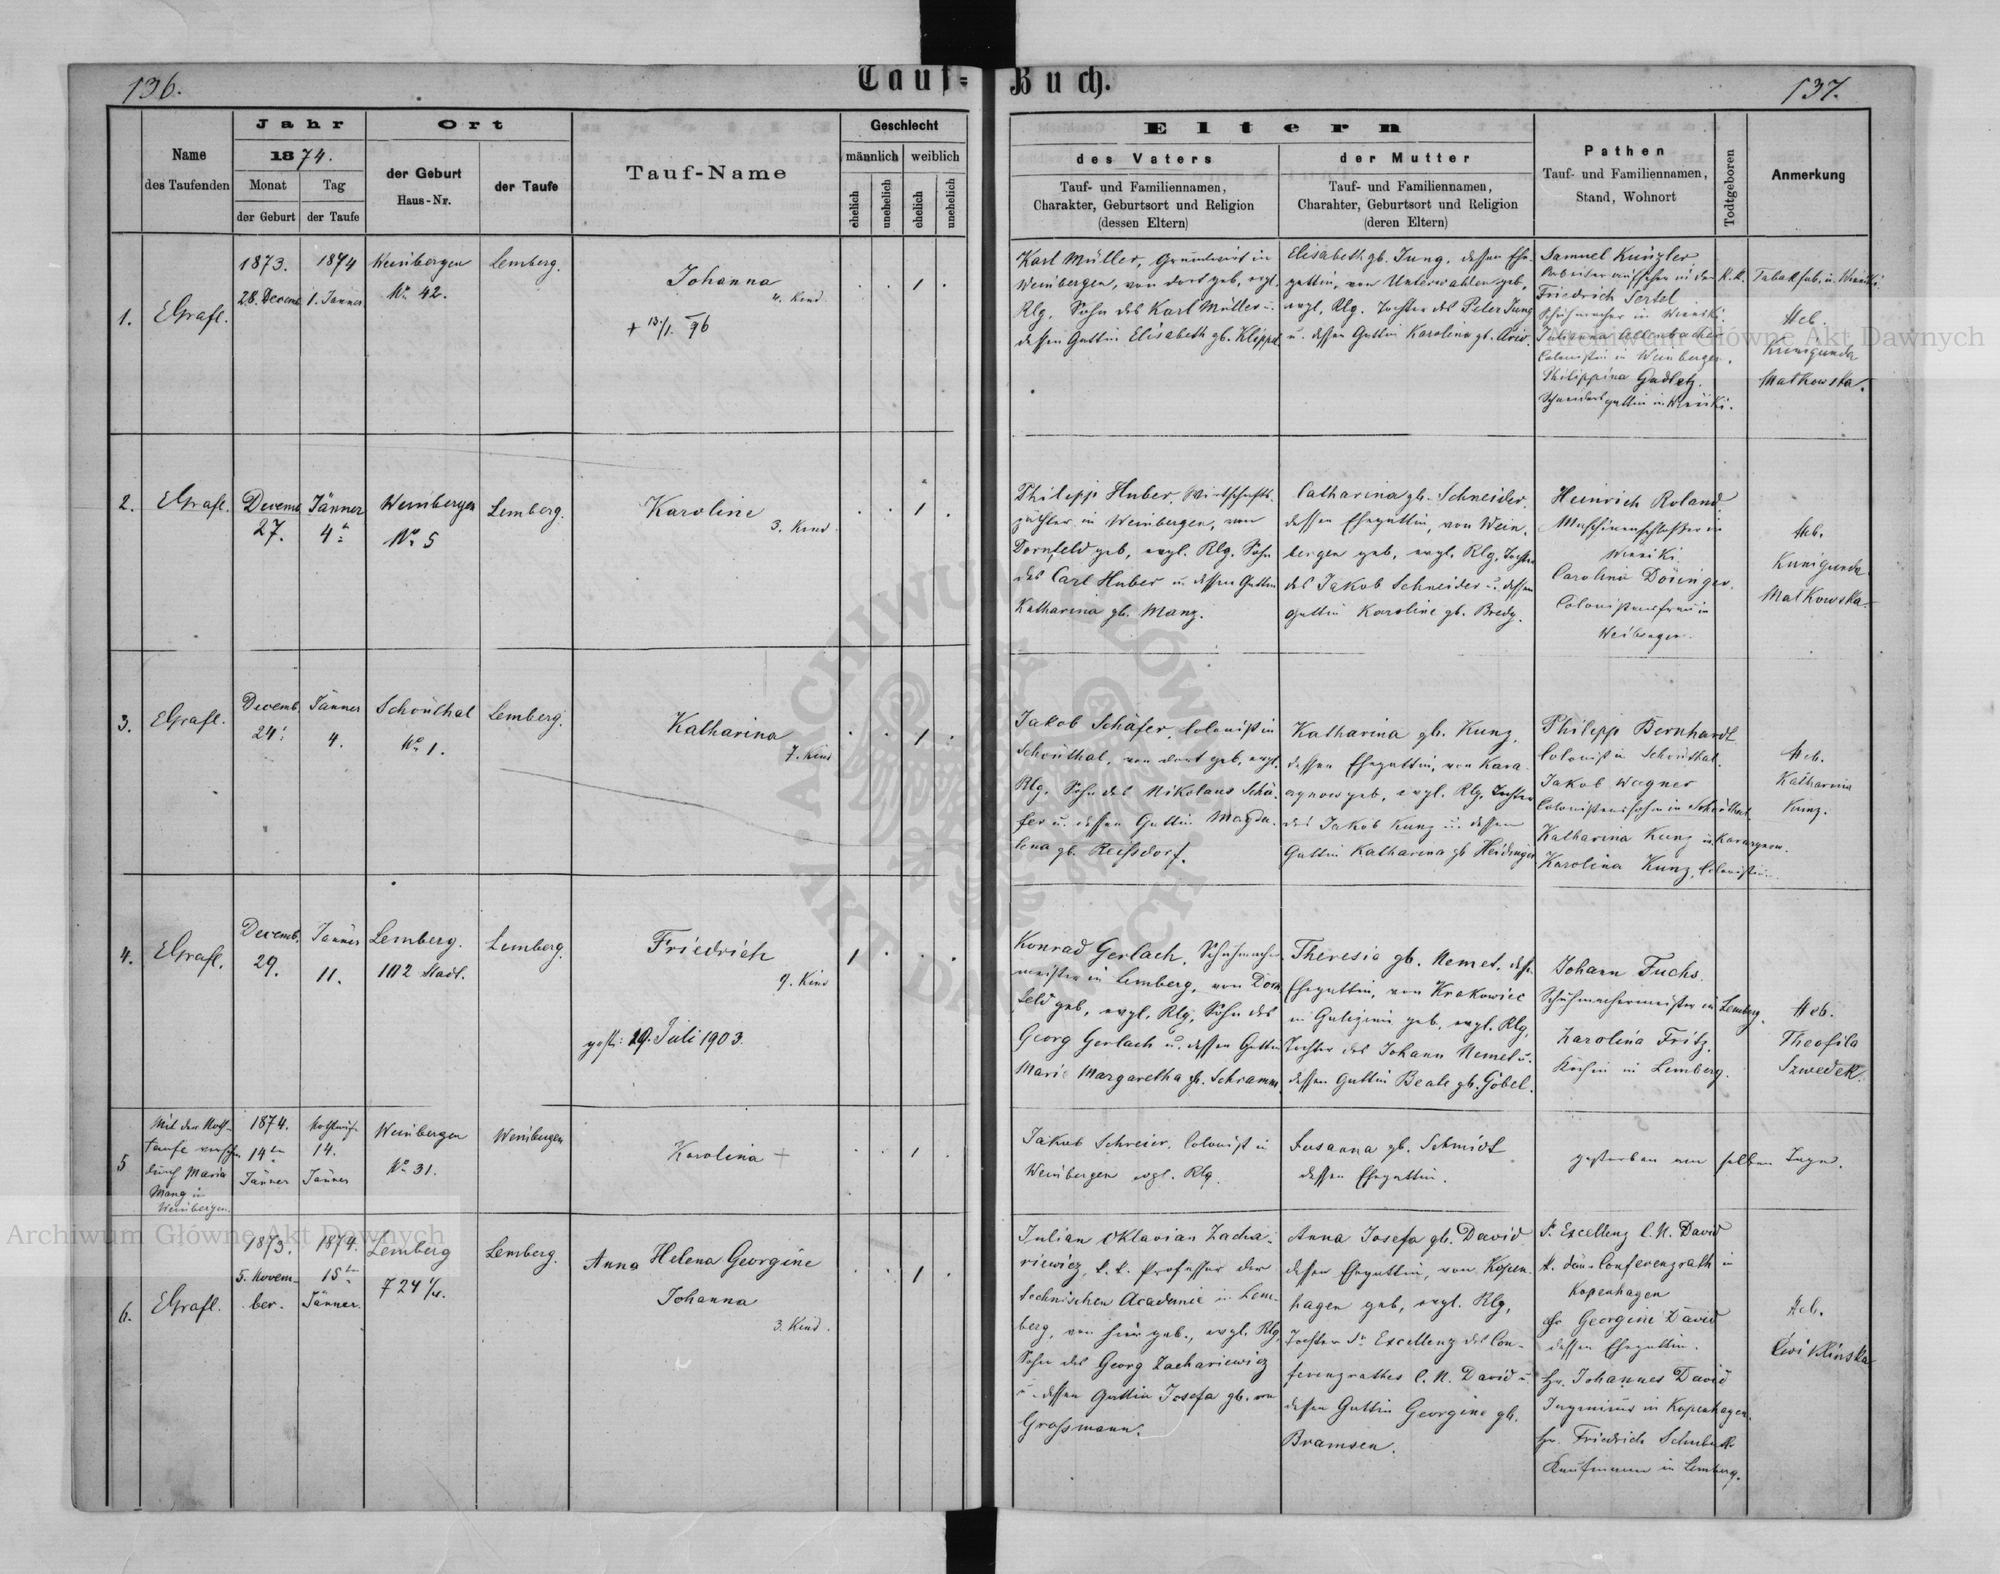 136.
Tauf-Buch.
137.
Name
des Taufenden
Jahr
1874.
Monat
der Geburt
Tag
der Taufe
Ort
der Geburt
Haus-Nr.
der Taufe
Tauf-Name
Geschlecht
männlich
weiblich
ehelich
unehelich
ehelich
unehelich
Eltern
des Vaters
Tauf- und Familiennamen,
Charakter, Geburtsort und Religion
(dessen Eltern)
der Mutter
Tauf- und Familiennamen,
Charakter, Geburtsort und Religion
(deren Eltern)
Pathen
Tauf- und Familiennamen,
Stand, Wohnort
Todtgeboren
Anmerkung
1.
EGrafl.
1873.
28. Decemb.
1874
1. Jänner
Weinbergen
No. 42.
Lemberg.
Johanna
4. Kind.
+ 13/1. 96
1
Karl Müller, Grundwirt in
Weinbergen, von dort geb, evgl.
Rlg. Sohn des Karl Müller u.
dessen Gattin Elisabeth gb. Kleppel
Elisabeth gb. Jung. dessen Ehe-
gattin, von Unterwalden geb,
evgl, Rlg. Tochter des Peter Jung
u. dessen Gattin Karolina gb.
Samuel Künzler
Arbeiteraufseher in der k. k. Tabakfab. in Winniki.
Friedrich Sertel
Schuhmacher in Winniki.
Julianna Allenbacher
Colonistin in Weinbergen.
Philippina Gadletz.
Schneidersgattin in Winniki.
Heb.
Kunigunda
Malkowska.
2.
EGrafl.
Decemb.
27.
Jänner
4ten
Weinbergen
No 5
Lemberg.
Karoline
3. Kind
1
Philipp Huber, Wirthschafts-
pächter in Weinbergen, von
Dornfeld geb, evgl. Rlg. Sohn
des Carl Huber u. dessen Gattin
Katharina gb. Manz.
Catharina gb. Schneider.
dessen Ehegattin, von Wein-
bergen geb, evgl. Rlg. Tochter
des Jakob Schneider u. dessen
Gattin Karoline gb. Bredy.
Heinrich Roland
Maschinenschlosser in
Winniki.
Carolina Dösinger.
Colonistensfrau in
Heb.
Kunigunda
Malkowska.
3.
EGrafl.
Decemb.
24.
Jänner
4.
Schönthal
No 1.
Lemberg.
Katharina
7. Kind
1
Jakob Schäfer, Colonist in
Schönthal, von dort geb, evgl.
Rlg. Sohn des Nikolaus Schä-
fer u. dessen Gattin Magda-
lena gb. Reissdorf.
Katharina gb. Kunz.
dessen Ehegattin, von Kara-
czynow geb, evgl. Rlg. Tochter
des Jakob Kunz u. dessen
Gattin Katharina gb Heidinger
Philipp Bernhardt
Colonist in Schönthal.
Jakob Wagner
Colonistensohn in Schönthal.
Katharina Kunz in
Karolina Kunz, Colonistin.
Heb.
Katharina
Kunz.
4.
EGrafl.
Decemb.
29.
Jänner
11.
Lemberg.
Stadt.
Lemberg.
Friedrich
9. Kind
gest: 29. Juli 1903.
1
Konrad Gerlach, Schuhmacher-
meister in Lemberg, von Dorn-
feld geb, evgl. Rlg, Sohn des
Georg Gerlach u. dessen Gattin
Marie Margaretha gb. Schramm
Theresia gb. Nemet, dess.
Ehegattin, von Krakowiec
in Galizien geb, evgl. Rlg,
Tochter des Johann Nemet u.
dessen Gattin Beate gb. Göbel.
Johann Fuchs.
Schuhmachermeister in Lemberg.
Karolina Fritz.
Köchin in Lemberg.
Heb.
Theofila
Szwedek.
5
Mit der Noth-
taufe versehen
durch Maria
Manz in
Weinbergen.
1874.
14ten
Jänner
14.
Jänner
Weinbergen
No 31.
Weinbergen
Karolina +
1
Jakob Schreier, Colonist in
Weinbergen evgl. Rlg.
Susanna gb. Schmidt
dessen Ehegattin.
gestorben am selben Tage.
6.
EGrafl.
1873.
5. Novem-
ber.
1874.
15ten
Jänner.
Lemberg
724 1/4.
Lemberg.
Anna Helena Georgine
Johanna
3. Kind.
1
Julian Oktavian Zacha-
riewicz, k. k. Professor der
technischen Academie in Lem-
berg, von hier geb., evgl. Rlg,
Sohn des Georg Zachariewicz
u. dessen Gattin Josefa gb. von
Grossmann.
Anna Josefa gb. David
dessen Ehegattin, von Kopen-
hagen geb, evgl. Rlg,
Tochter Sr Excellenz des Con-
ferenzrathes C. N. David u.
dessen Gattin Georgine gb.
Bramsen.
Sr Excellenz C. N. David
k. dän. Conferenzrath in
Kopenhagen
Georgine David
dessen Ehegattin.
Hr. Johannes David
Ingenieur in Kopenhagen.
Hr. Friedrich Schubuth
Kaufmann in Lemberg.
Heb.
Cwiklinska
Archiwum Główne Akt Dawnych
Archiwum Główne Akt Dawnych
ARCHIWUM GŁÓWNE AKT DAWNYCH